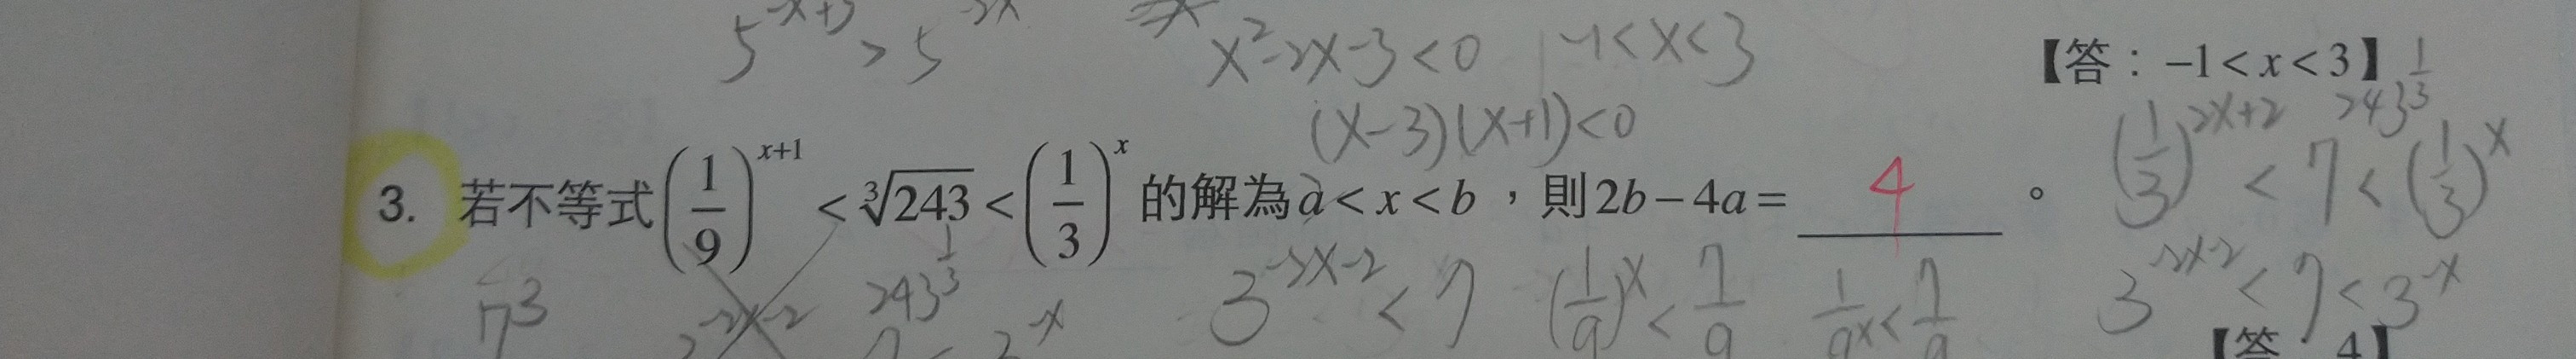 5^{-x+3} > 5^{-2x} x²-2x-3<0 -1<x<3
【答：-1<x<3】
(x-3)(x+1)<0
3. 若不等式(1/9)^{x+1} < ∛243 < (1/3)^x 的解為 a < x < b ，則 2b - 4a = 4 。
(1/3)^{2x+2} < 7 < (1/3)^x
243^{1/3}
7³ 243^{1/3} 3^{-2x-2} < 7 (1/9)^x < 7/9 1/9^x < 7/9 3^{-2x-2} < 7 < 3^{-x}
【答 4】